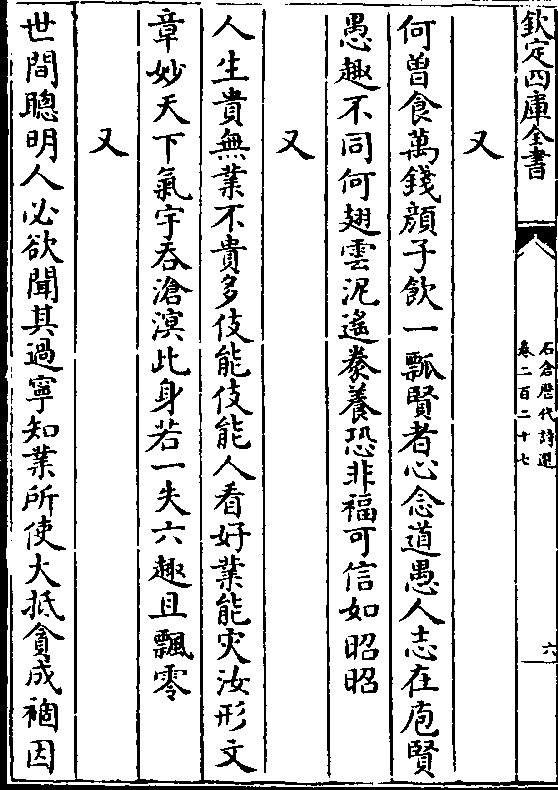 欽定四庫全書
石倉歷代詩選
卷二百二十七
六
又
何曽食萬錢顔子飲一瓢賢者心念道愚人志在庖賢
愚趣不同何翅雲泥遙豢養恐非福可信如昭昭
又
人生貴無業不貴多伎能伎能人看好業能灾汝形文
章妙天下氣宇吞滄溟此身若一失六趣且飄零
又
世間聰明人必欲聞其過寧知業所使大抵貪成禍因